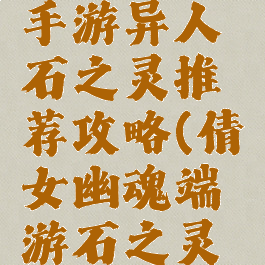 手游异人
石之灵推
荐攻略(倩
女幽魂端
游石之灵